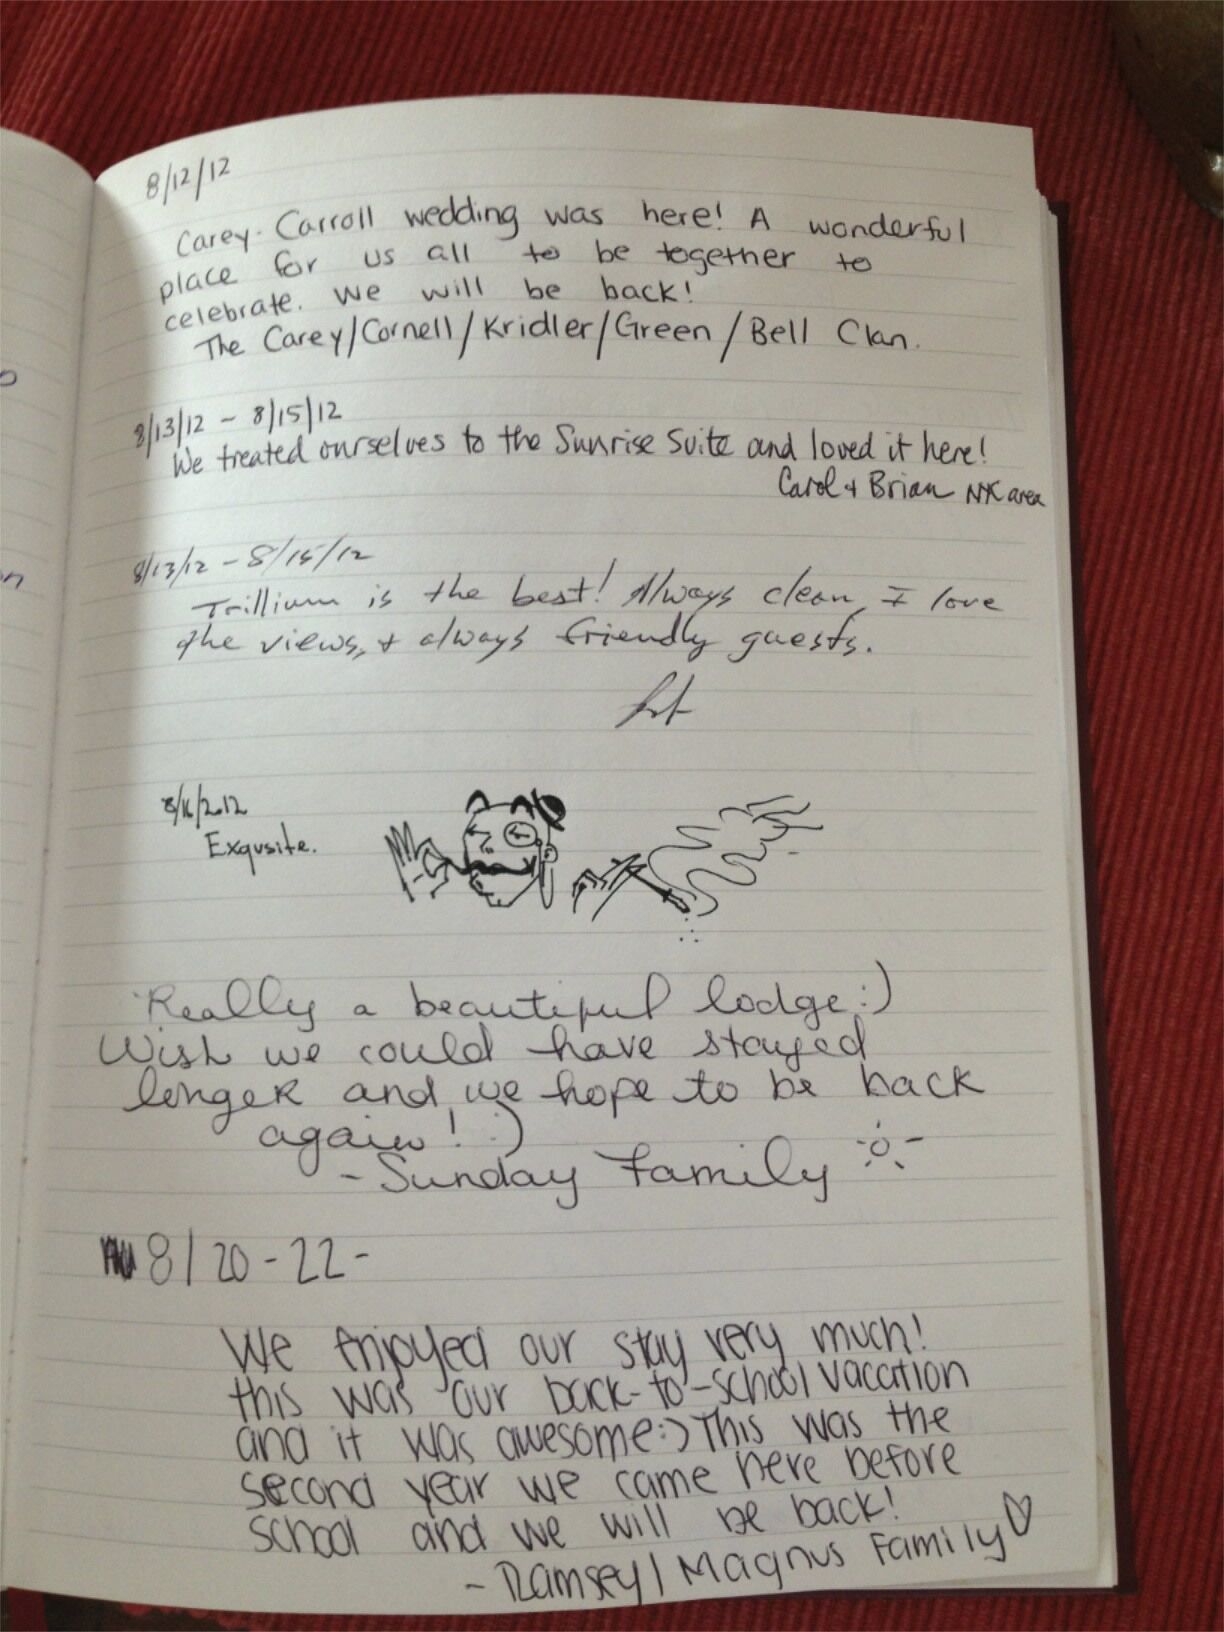 8/12/12
Carey-Carroll wedding was here! A wonderful
place for us all to be together to
celebrate. We will be back!
The Carey/Cornell/Kridler/Green/Bell Clan.
8/13/12 - 8/15/12
We treated ourselves to the Sunrise Suite and loved it here!
Carol + Brian NYC area
8/13/12 - 8/15/12
Trillium is the best! Always clean, I love
the views, + always friendly guests.
8/16/2012
Exqusite.
Really a beautiful lodge :)
Wish we could have stayed
longer and we hope to be back
again! :)
- Sunday Family
8/20-22-
We enjoyed our stay very much!
this was our back-to-school vacation
and it was awesome:) This was the
second year we came here before
school and we will be back!
- Ramsey/Magnus Family